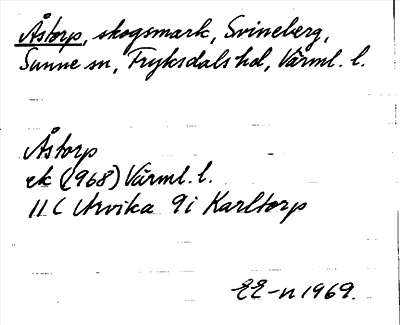 Åstorp, skogsmark, Svineberg,
Sunne sn, Fryksdals hd, Värml. l.
Åstorp
ek (1968) Värml. l.
11C Arvika 9i Karltorp
EE-n 1969.